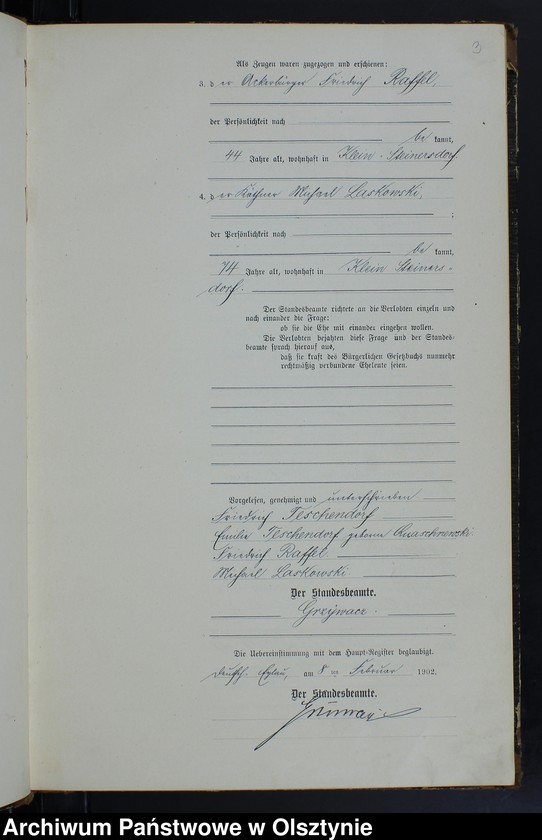 3
Als Zeugen waren zugezogen und erschienen:
3. der Ackerbürger Friedrich Raffel,
der Persönlichkeit nach
be kannt,
44 Jahre alt, wohnhaft in Klein-Steinersdorf.
4. der Käthner Michael Laskowski,
;
der Persönlichkeit nach
be kannt,
74 Jahre alt, wohnhaft in Klein Steiners-
dorf.
Der Standesbeamte richtete an die Verlobten einzeln und
nach einander die Frage:
ob sie die Ehe mit einander eingehen wollen.
Die Verlobten bejahten diese Frage und der Standes-
beamte sprach hierauf aus,
daß sie kraft des Bürgerlichen Gesetzbuchs nunmehr
rechtmäßig verbundene Eheleute seien.
Vorgelesen, genehmigt und unterschrieben
Friedrich Teschendorf
Emilie Teschendorf geborne
Friedrich Raffel
Michael Laskowski.
Der Standesbeamte.
Grzywacz.
Die Uebereinstimmung mit dem Haupt-Register beglaubigt.
Deutsch. Eylau, am 8 ten Februar 1902.
Der Standesbeamte.
Archiwum Państwowe w Olsztynie